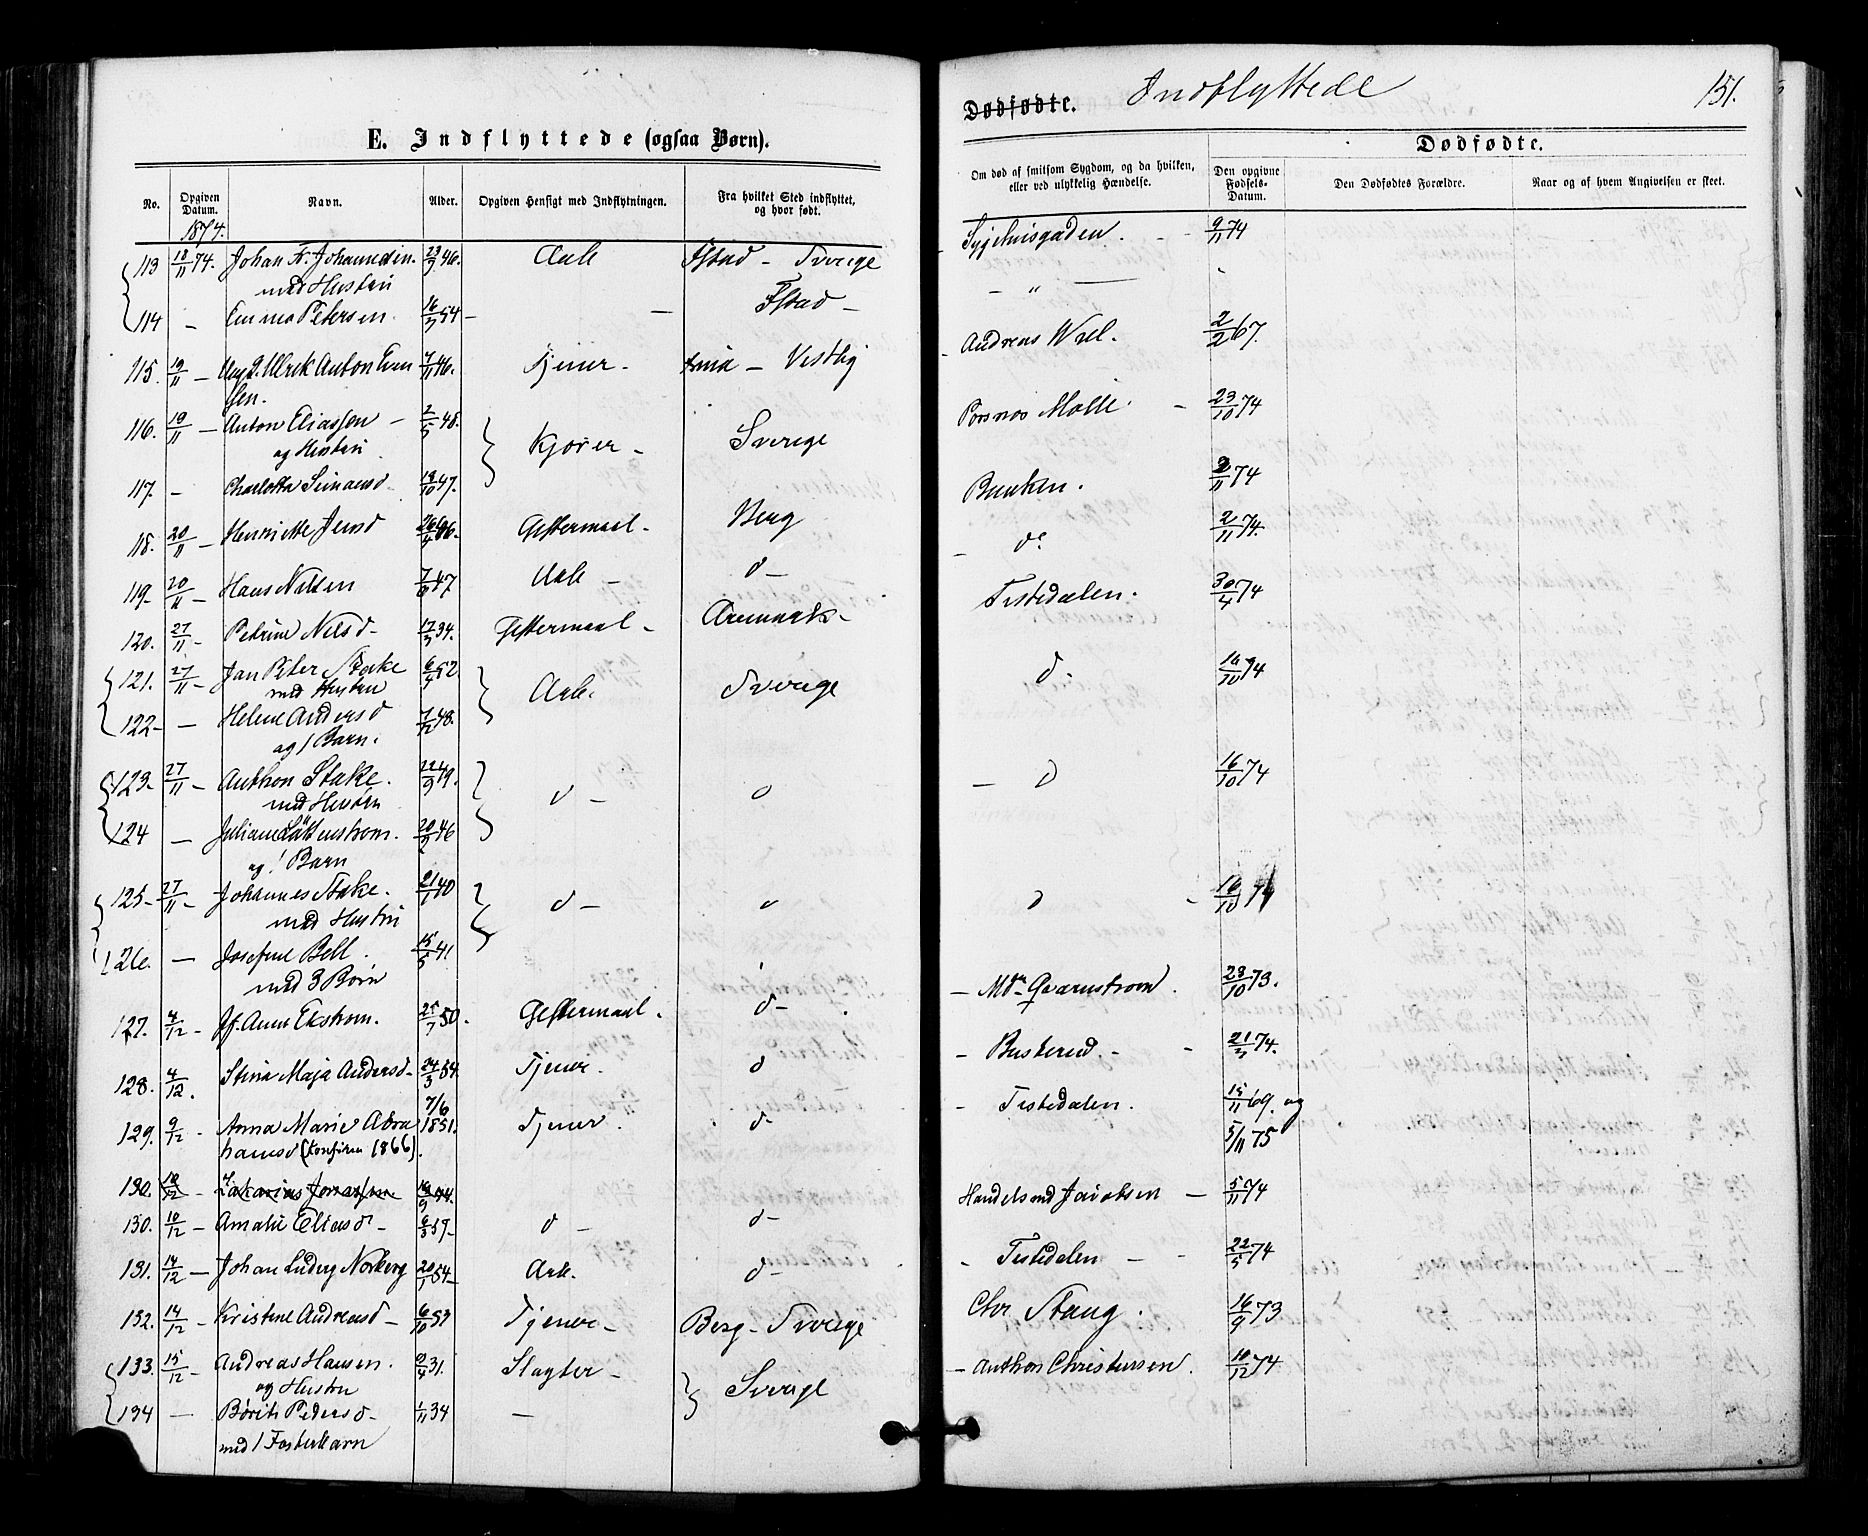 E. Indflyttede (ogsaa Børn).
No. Opgiven Datum. Navn. Alder. Opgiven Hensigt med Indflytningen. Fra hvilket Sted indflyttet, og hvor født.
1874.
113 18/11 74. Johan Fr. 46. Sverige
med Hustru
114 — Emma Petersen. 54 — —
115. 19/11 — Ulrik Anton 7/11 46. Tjener — Vestby
sen.
116. 19/11 — Anton Eliassen — 2/5 48. Sverige
og Hustru
117. — Charlotta 19/10 47.
118. 20/11 — Henriette Jensd 26/4 Giftermaal — Berg
119. 20/11 — Hans Nilsen 47 — d —
120. 27/11 — Petrine Nilsd — 34. Giftermaal — Aremark —
121. 27/11 — Jan Peter Stake 52 Arb. Sverige
med Hustru
122 — — Helene Andersd 7/12 48.
og 1 Barn.
123 — 27/11 — Anthon Stake. 22/9 49. d — d
med Hustru
124 — Juliane 46
og 1 Barn
125 — 27/11 — Johannes Stake. 21/1 40 d — d
med Hustru
126. — Josefine Bell. 15/5 41.
med 3 Børn
127. 4/12 — Anna Ekstrom. 25/7 50. Giftermaal. d —
128. 4/12. Stina Maja Andersd — 24/3 54. Tjener. d
129. 9/12 — Anna Marie Abra 7/6 1851. Tjener. d —
hamsd (konfirm 1866).
130. 10/12 — Zakarias Jonassen
130. 10/12 — Amalie Eliasd — 59 — d — d —
131. 14/12 — Johan Ludvig Norberg 20/1 54 — Arb. d —
132. 14/12 — Kristine Andreasd — 6/10 53 Tjener — Berg — Sverige
133. 15/12 — Andreas Hansen. 31. Slagter — Sverige
og Hustru
134 — Børith Pedersd — 1/11 34 —
med 1 Fosterbarn
Dødfødte. Indflyttede 151.
Dødfødte.
Om død af smitsom Sygdom, og da hvilken, eller ved ulykkelig Hændelse. Den opgivne Fødsels-Datum. Den Dødfødtes Forældre. Naar og af hvem Angivelsen er skeet.
Sygehusgaden. 9/11 74
— " —
Andreas Wiel. 2/2 67.
Porsnes Mølle. — 23/10 74
Banken. 2/11 74
— do 2/11 74.
Tistedalen. 30/4 74
d. 16/10 74
— d 16/10 74
d 16/10 74
— Qvarnstrom. 23/10 73.
— Buskerud. — 74.
— Tistedalen. 15/11 69. og
5/11 75
Handelsmd Jacobsen — 5/11 74
— Tistedalen — 22/5 74
Chr. Stang. 16/9 73
— Anthon Christensen. 10/12 74